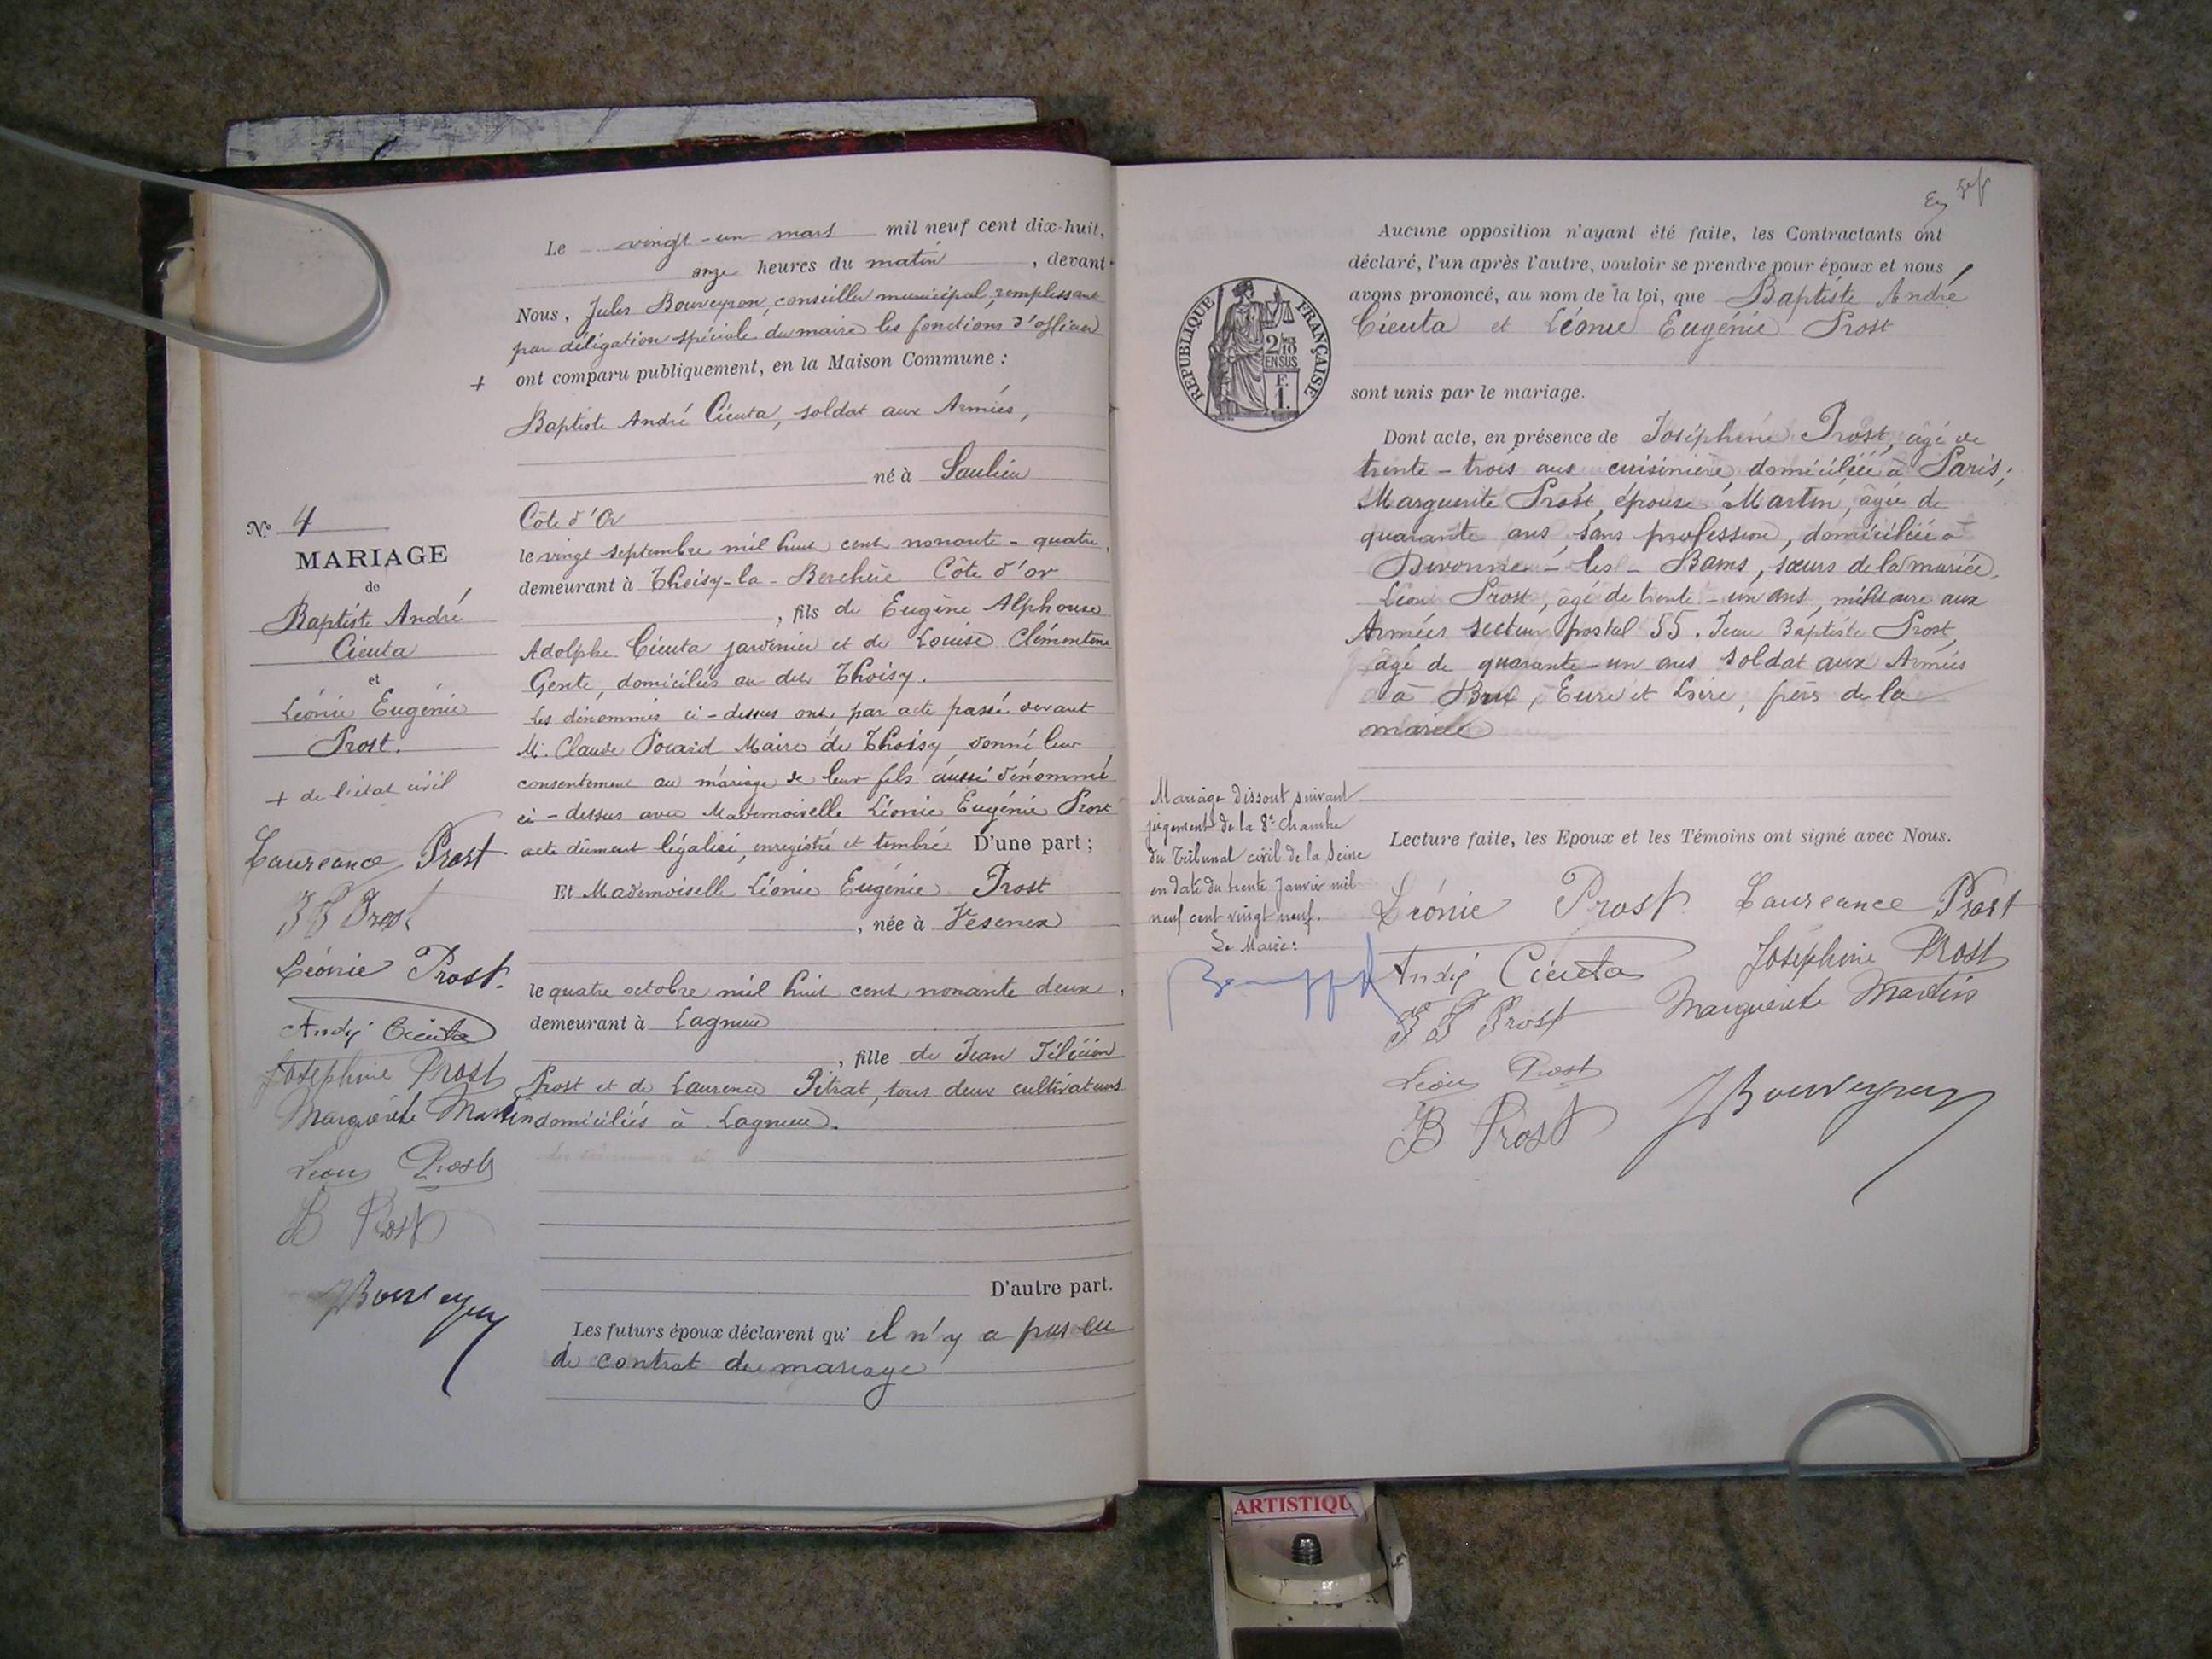 Le vingt-un mars mil neuf cent dix-huit,
onze heures du matin, devant
Nous, Jules Bouveyron, conseiller municipal, remplissant
par délégation spéciale du maire les fonctions d'officier
+ ont comparu publiquement, en la Maison Commune :
Baptiste André Cieuta, soldat aux Armées,
né à Saulieu
Côte d'Or
le vingt septembre mil huit cent nonante-quatre,
demeurant à Thoisy-la-Berchère Côte d'or
, fils de Eugène Alphonse
Adolphe Cieuta jardinier et de Louise Clémentine
Gente, domiciliés au dit Thoisy.
Les dénommés ci-dessus ont, par acte passé devant
M. Claude Pocard Maire de Thoisy, donné leur
consentement au mariage de leur fils aussi dénommé
ci-dessus avec Mademoiselle Léonie Eugénie Prost
acte dûment légalisé, enregistré et timbré D'une part ;
Et Mademoiselle Léonie Eugénie Prost
, née à Vesenex
le quatre octobre mil huit cent nonante deux,
demeurant à Lagnieu
, fille de Jean Félicien
Prost et de Laurence Pitrat, tous deux cultivateurs
domiciliés à Lagnieu.
D'autre part.
Les futurs époux déclarent qu' il n'y a pas eu
de contrat de mariage
N° 4
MARIAGE
de
Baptiste André
Cieuta
et
Léonie Eugénie
Prost.
+ de l'état civil
Laureance Prost
J F Prost
Léonie Prost.
André Cieuta
Joséphine Prost
Marguerite Martin
Léon Prost
B Prost
JBouveyron
Aucune opposition n'ayant été faite, les Contractants ont
déclaré, l'un après l'autre, vouloir se prendre pour époux et nous
avons prononcé, au nom de la loi, que Baptiste André
Cieuta et Léonie Eugénie Prost
sont unis par le mariage.
Dont acte, en présence de Joséphine Prost, âgé de
trente-trois ans cuisinière domiciliée à Paris,
Marguerite Prost, épouse Martin, âgée de
quarante ans sans profession, domiciliée à
Divonne-les-Bains, sœurs de la mariée,
Léon Prost, âgé de trente-un ans, militaire aux
Armées secteur postal 55. Jean Baptiste Prost,
âgé de quarante-un ans soldat aux Armées
à Eure et Loire, frères de la
mariée
Lecture faite, les Epoux et les Témoins ont signé avec Nous.
Léonie Prost Laureance Prost
André Cieuta Joséphine Prost
J F Prost Marguerite Martin
Léon Prost
B Prost JBouveyron
REPUBLIQUE FRANÇAISE
2/10
EN SUS
F.
1.
Mariage dissout suivant
jugement de la 8e Chambre
du Tribunal civil de la Seine
en date du trente Janvier mil
neuf cent vingt neuf.
Le Maire :
ARTISTIQU